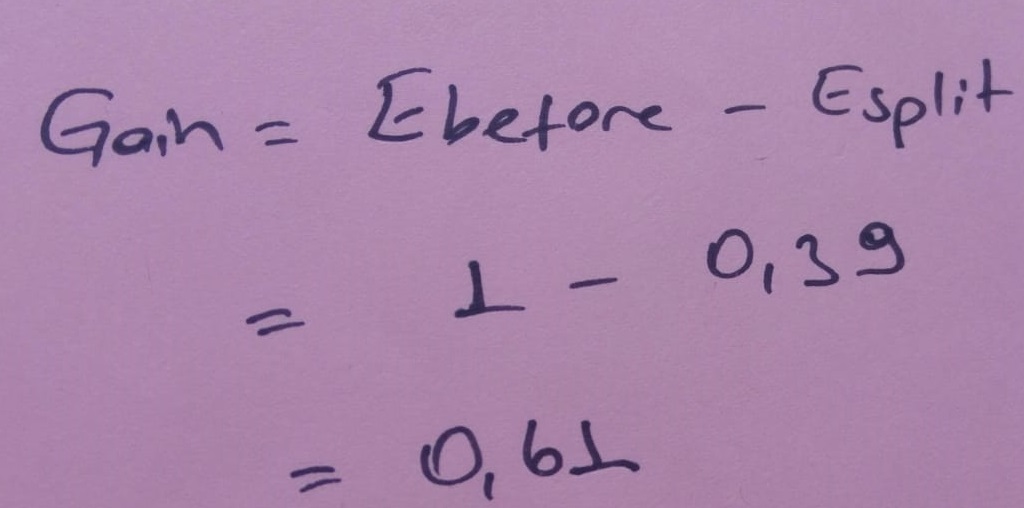 Gain = Ebefore - Esplit
= 1 - 0,39
= 0,61